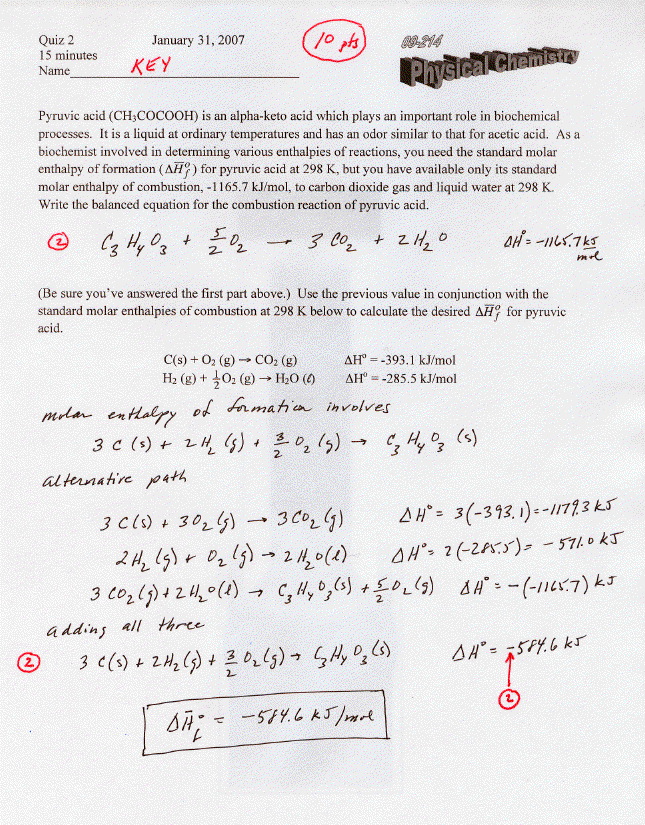 Quiz 2 January 31, 2007 10 pts 09-214
15 minutes Physical Chemistry
Name KEY
Pyruvic acid (CH₃COCOOH) is an alpha-keto acid which plays an important role in biochemical
processes. It is a liquid at ordinary temperatures and has an odor similar to that for acetic acid. As a
biochemist involved in determining various enthalpies of reactions, you need the standard molar
enthalpy of formation (ΔH̅°f) for pyruvic acid at 298 K, but you have available only its standard
molar enthalpy of combustion, -1165.7 kJ/mol, to carbon dioxide gas and liquid water at 298 K.
Write the balanced equation for the combustion reaction of pyruvic acid.
2 C₃H₄O₃ + 5/2 O₂ → 3 CO₂ + 2 H₂O ΔH° = -1165.7 kJ/mol
(Be sure you've answered the first part above.) Use the previous value in conjunction with the
standard molar enthalpies of combustion at 298 K below to calculate the desired ΔH̅°f for pyruvic
acid.
C(s) + O₂ (g) → CO₂ (g) ΔH° = -393.1 kJ/mol
H₂ (g) + 1/2 O₂ (g) → H₂O (ℓ) ΔH° = -285.5 kJ/mol
molar enthalpy of formation involves
3 C (s) + 2 H₂ (g) + 3/2 O₂ (g) → C₃H₄O₃ (s)
alternative path
3 C(s) + 3 O₂ (g) → 3 CO₂ (g) ΔH° = 3(-393.1) = -1179.3 kJ
2 H₂ (g) + O₂ (g) → 2 H₂O (l) ΔH° = 2(-285.5) = -571.0 kJ
3 CO₂ (g) + 2 H₂O (l) → C₃H₄O₃ (s) + 5/2 O₂ (g) ΔH° = -(-1165.7) kJ
adding all three
2 3 C(s) + 2 H₂ (g) + 3/2 O₂ (g) → C₃H₄O₃ (s) ΔH° = -584.6 kJ
2
ΔH̅°f = -584.6 kJ/mol